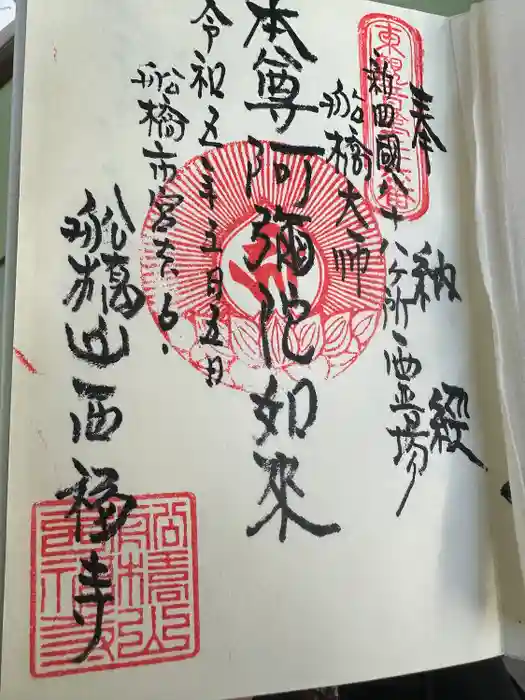 奉納経
新四國八十八ヶ所霊場
船橋大师
本尊阿彌陀如來
令和五年五月五日
船橋市宮本6.
船橋山西福寺